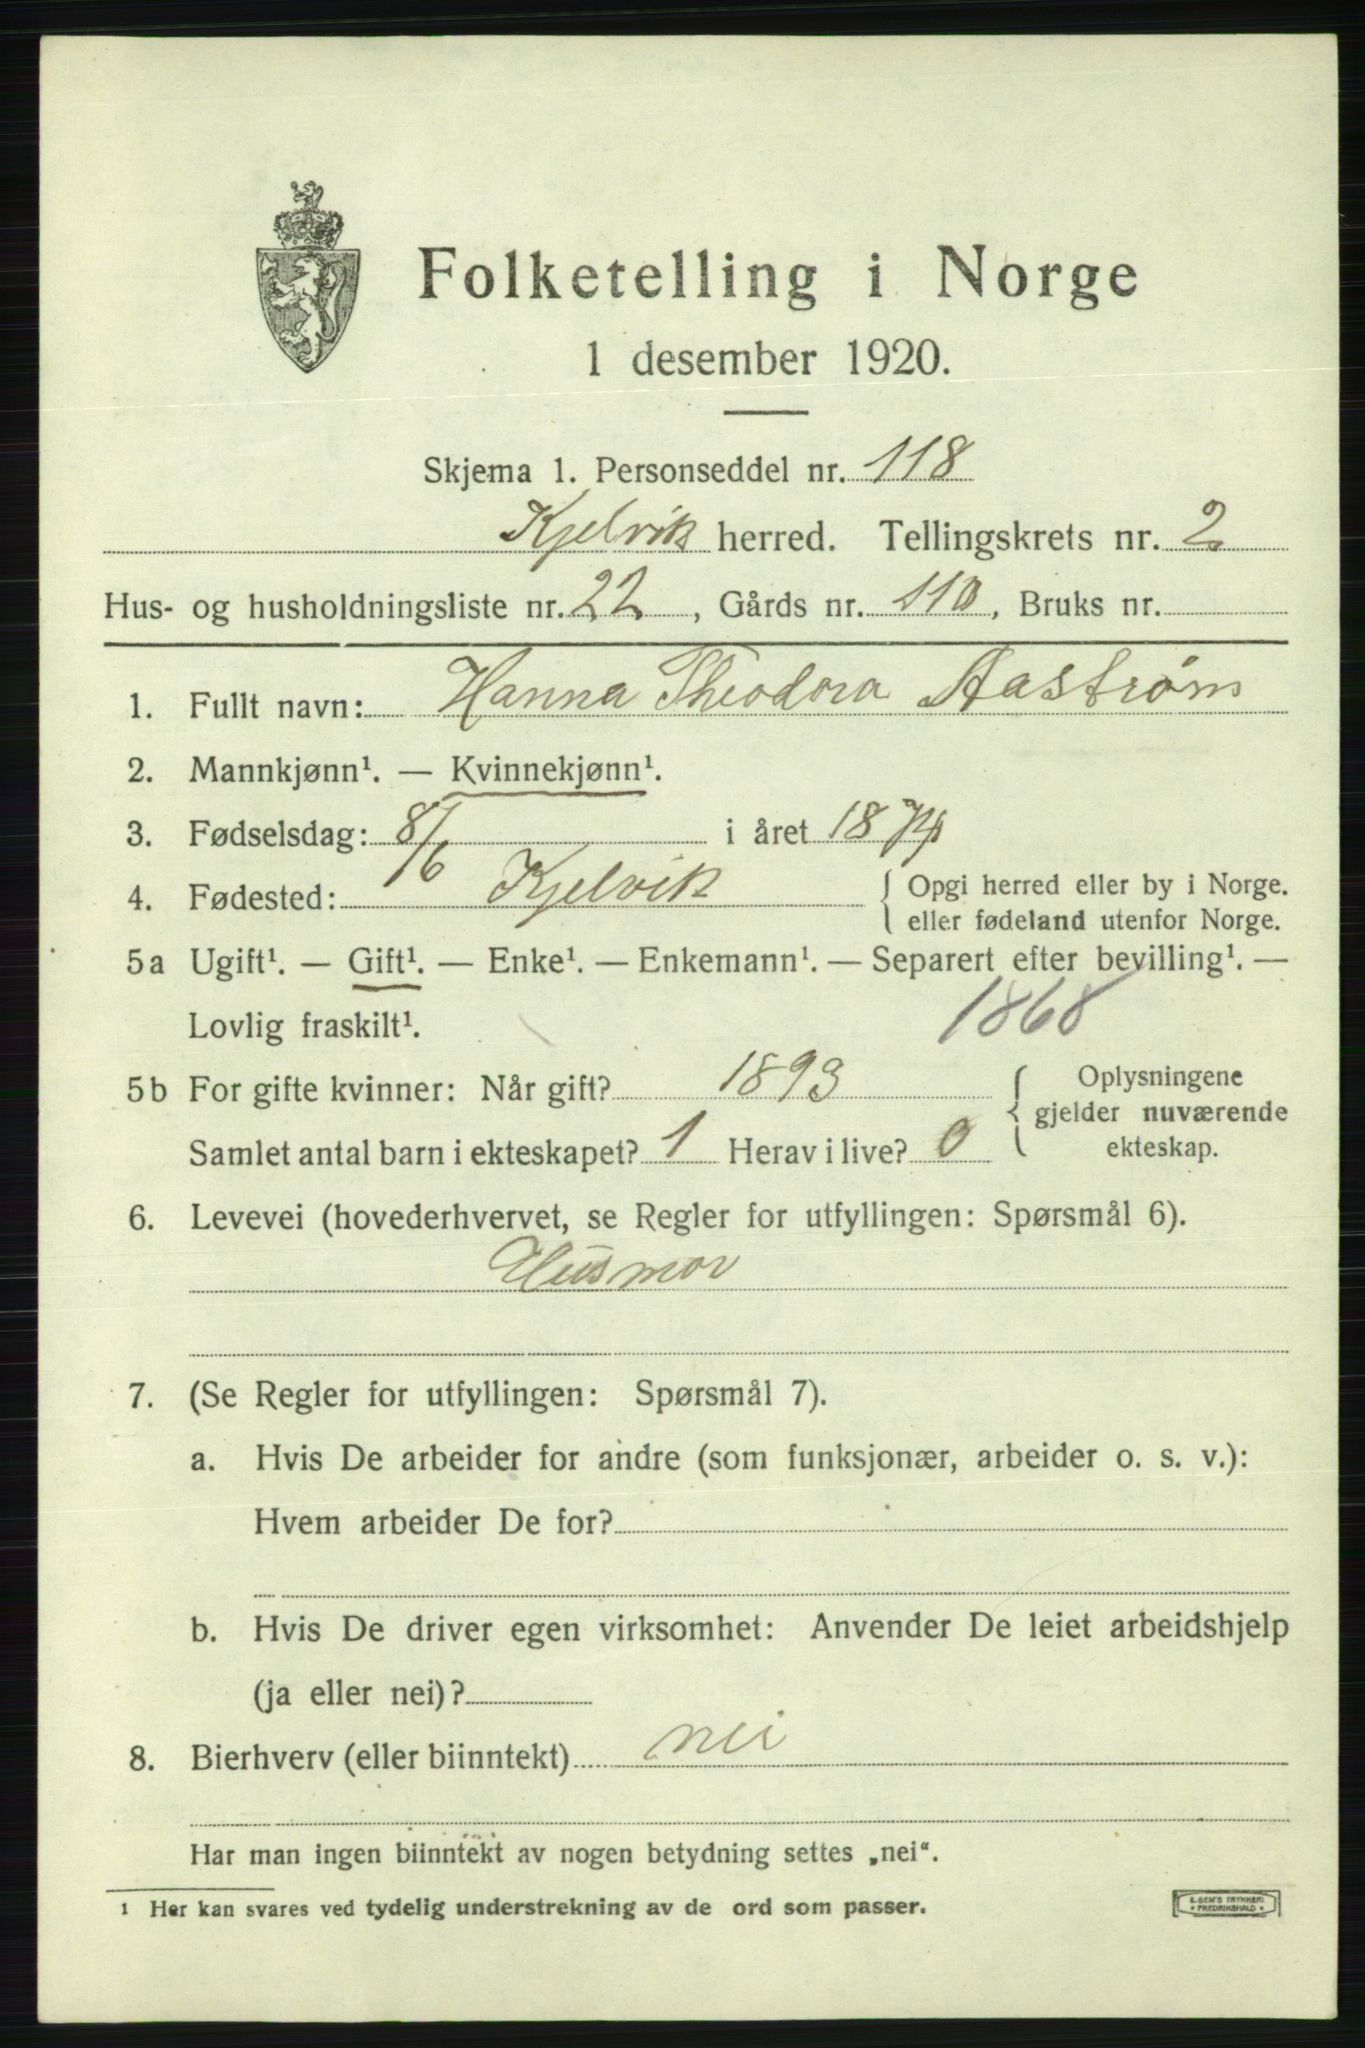 Folketelling i Norge
1 desember 1920.
Skjema 1. Personseddel nr. 118
Kjelvik herred. Tellingskrets nr. 2
Hus- og husholdningsliste nr. 22, Gårds nr. 110, Bruks nr.
1. Fullt navn: Hanna Theodora Aastrøm
2. Mannkjønn¹. — Kvinnekjønn¹.
3. Fødselsdag: 8/6 i året 1874
4. Fødested: Kjelvik { Opgi herred eller by i Norge.
eller fødeland utenfor Norge.
5a Ugift¹. — Gift¹. — Enke¹. — Enkemann¹. — Separert efter bevilling¹. —
Lovlig fraskilt¹. 1868
5b For gifte kvinner: Når gift? 1893 { Oplysningene
gjelder nuværende
Samlet antal barn i ekteskapet? 1 Herav i live? 0 ekteskap.
6. Levevei (hovederhvervet, se Regler for utfyllingen: Spørsmål 6).
Husmor
7. (Se Regler for utfyllingen: Spørsmål 7).
a. Hvis De arbeider for andre (som funksjonær, arbeider o. s. v.):
Hvem arbeider De for?
b. Hvis De driver egen virksomhet: Anvender De leiet arbeidshjelp
(ja eller nei)?
8. Bierhverv (eller biinntekt) nei
Har man ingen biinntekt av nogen betydning settes „nei“.
¹ Her kan svares ved tydelig understrekning av de ord som passer.
E. SEM'S TRYKKERI
FREDRIKSHALD